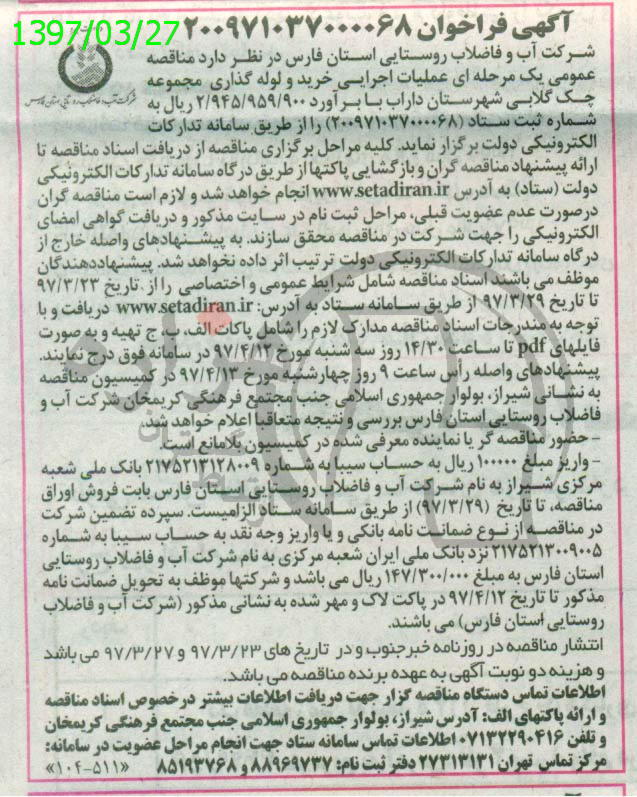 1397/03/27
آگهی فراخوان ۲۰۰۹۷۱۰۳۷۰۰۰۰۶۸
شرکت آب و فاضلاب روستایی استان فارس
شرکت آب و فاضلاب روستایی استان فارس در نظر دارد مناقصه
عمومی یک مرحله ای عملیات اجرایی خرید و لوله گذاری مجموعه
چک گلابی شهرستان داراب با برآورد ۲/۹۴۵/۹۵۹/۹۰۰ ریال به
شماره ثبت ستاد (۲۰۰۹۷۱۰۳۷۰۰۰۰۶۸) را از طریق سامانه تدارکات
الکترونیکی دولت برگزار نماید. کلیه مراحل برگزاری مناقصه از دریافت اسناد مناقصه تا
ارائه پیشنهاد مناقصه گران و بازگشایی پاکتها از طریق درگاه سامانه تدارکات الکترونیکی
دولت (ستاد) به آدرس www.setadiran.ir انجام خواهد شد و لازم است مناقصه گران
درصورت عدم عضویت قبلی، مراحل ثبت نام در سایت مذکور و دریافت گواهی امضای
الکترونیکی را جهت شرکت در مناقصه محقق سازند. به پیشنهادهای واصله خارج از
درگاه سامانه تدارکات الکترونیکی دولت ترتیب اثر داده نخواهد شد. پیشنهاددهندگان
موظف می باشند اسناد مناقصه شامل شرایط عمومی و اختصاصی را از تاریخ ۹۷/۳/۲۳
تا تاریخ ۹۷/۳/۲۹ از طریق سامانه ستاد به آدرس: www.setadiran.ir دریافت و با
توجه به مندرجات اسناد مناقصه مدارک لازم را شامل پاکات الف، ب، ج تهیه و به صورت
فایلهای pdf تا ساعت ۱۴/۳۰ روز سه شنبه مورخ ۹۷/۴/۱۲ در سامانه فوق درج نمایند.
پیشنهادهای واصله رأس ساعت ۹ روز چهارشنبه مورخ ۹۷/۴/۱۳ در کمیسیون مناقصه
به نشانی شیراز، بولوار جمهوری اسلامی جنب مجتمع فرهنگی کریمخان شرکت آب و
فاضلاب روستایی استان فارس بررسی و نتیجه متعاقبا اعلام خواهد شد.
- حضور مناقصه گر یا نماینده معرفی شده در کمیسیون بلامانع است.
- واریز مبلغ ۱۰۰۰۰۰ ریال به حساب سیبا به شماره ۲۱۷۵۲۱۳۱۲۸۰۰۹ بانک ملی شعبه
مرکزی شیراز به نام شرکت آب و فاضلاب روستایی استان فارس بابت فروش اوراق
مناقصه، تا تاریخ (۹۷/۳/۲۹) از طریق سامانه ستاد الزامیست. سپرده تضمین شرکت
در مناقصه از نوع ضمانت نامه بانکی و یا واریز وجه نقد به حساب سیبا به شماره
۲۱۷۵۲۱۳۰۰۹۰۰۵ نزد بانک ملی ایران شعبه مرکزی به نام شرکت آب و فاضلاب روستایی
استان فارس به مبلغ ۱۴۷/۳۰۰/۰۰۰ ریال می باشد و شرکتها موظف به تحویل ضمانت نامه
مذکور تا تاریخ ۹۷/۴/۱۲ در پاکت لاک و مهر شده به نشانی مذکور (شرکت آب و فاضلاب
روستایی استان فارس) می باشند.
انتشار مناقصه در روزنامه خبرجنوب و در تاریخ های ۹۷/۳/۲۳ و ۹۷/۳/۲۷ می باشد
و هزینه دو نوبت آگهی به عهده برنده مناقصه می باشد.
اطلاعات تماس دستگاه مناقصه گزار جهت دریافت اطلاعات بیشتر درخصوص اسناد مناقصه
و ارائه پاکتهای الف: آدرس شیراز، بولوار جمهوری اسلامی جنب مجتمع فرهنگی کریمخان
و تلفن ۰۷۱۳۲۲۹۰۴۱۶ اطلاعات تماس سامانه ستاد جهت انجام مراحل عضویت در سامانه:
مرکز تماس تهران ۲۷۳۱۳۱۳۱ دفتر ثبت نام: ۸۸۹۶۹۷۳۷ و ۸۵۱۹۳۷۶۸ «۱۰۴-۵۱۱»